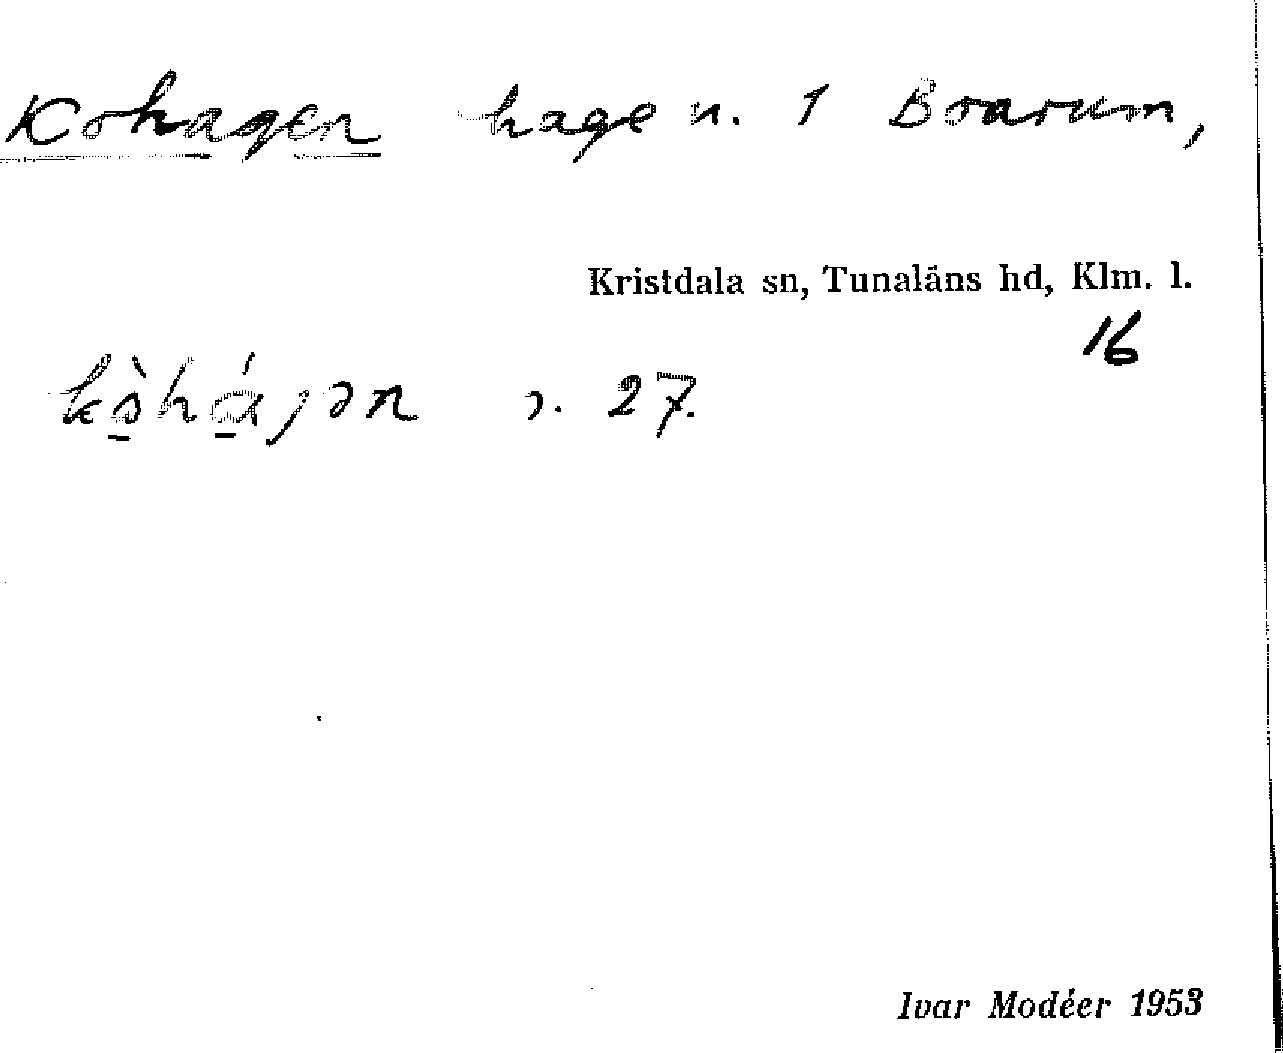 Kohagen hage n. 1 Boarum,
Kristdala sn, Tunaläns hd, Klm. l.
16
kò̠há̠jən s. 27.
Ivar Modéer 1953